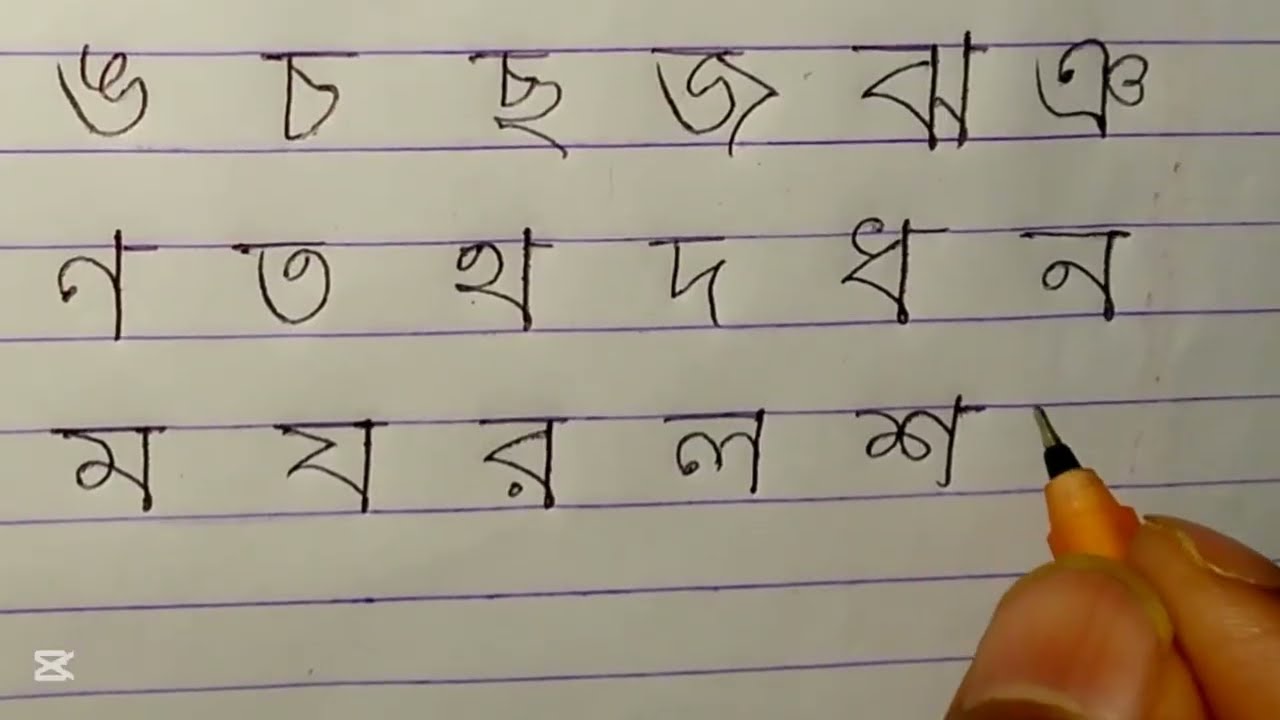 ঙ চ ছ জ ঝ ঞ
ণ ত থ দ ধ ন
ম য র ল শ